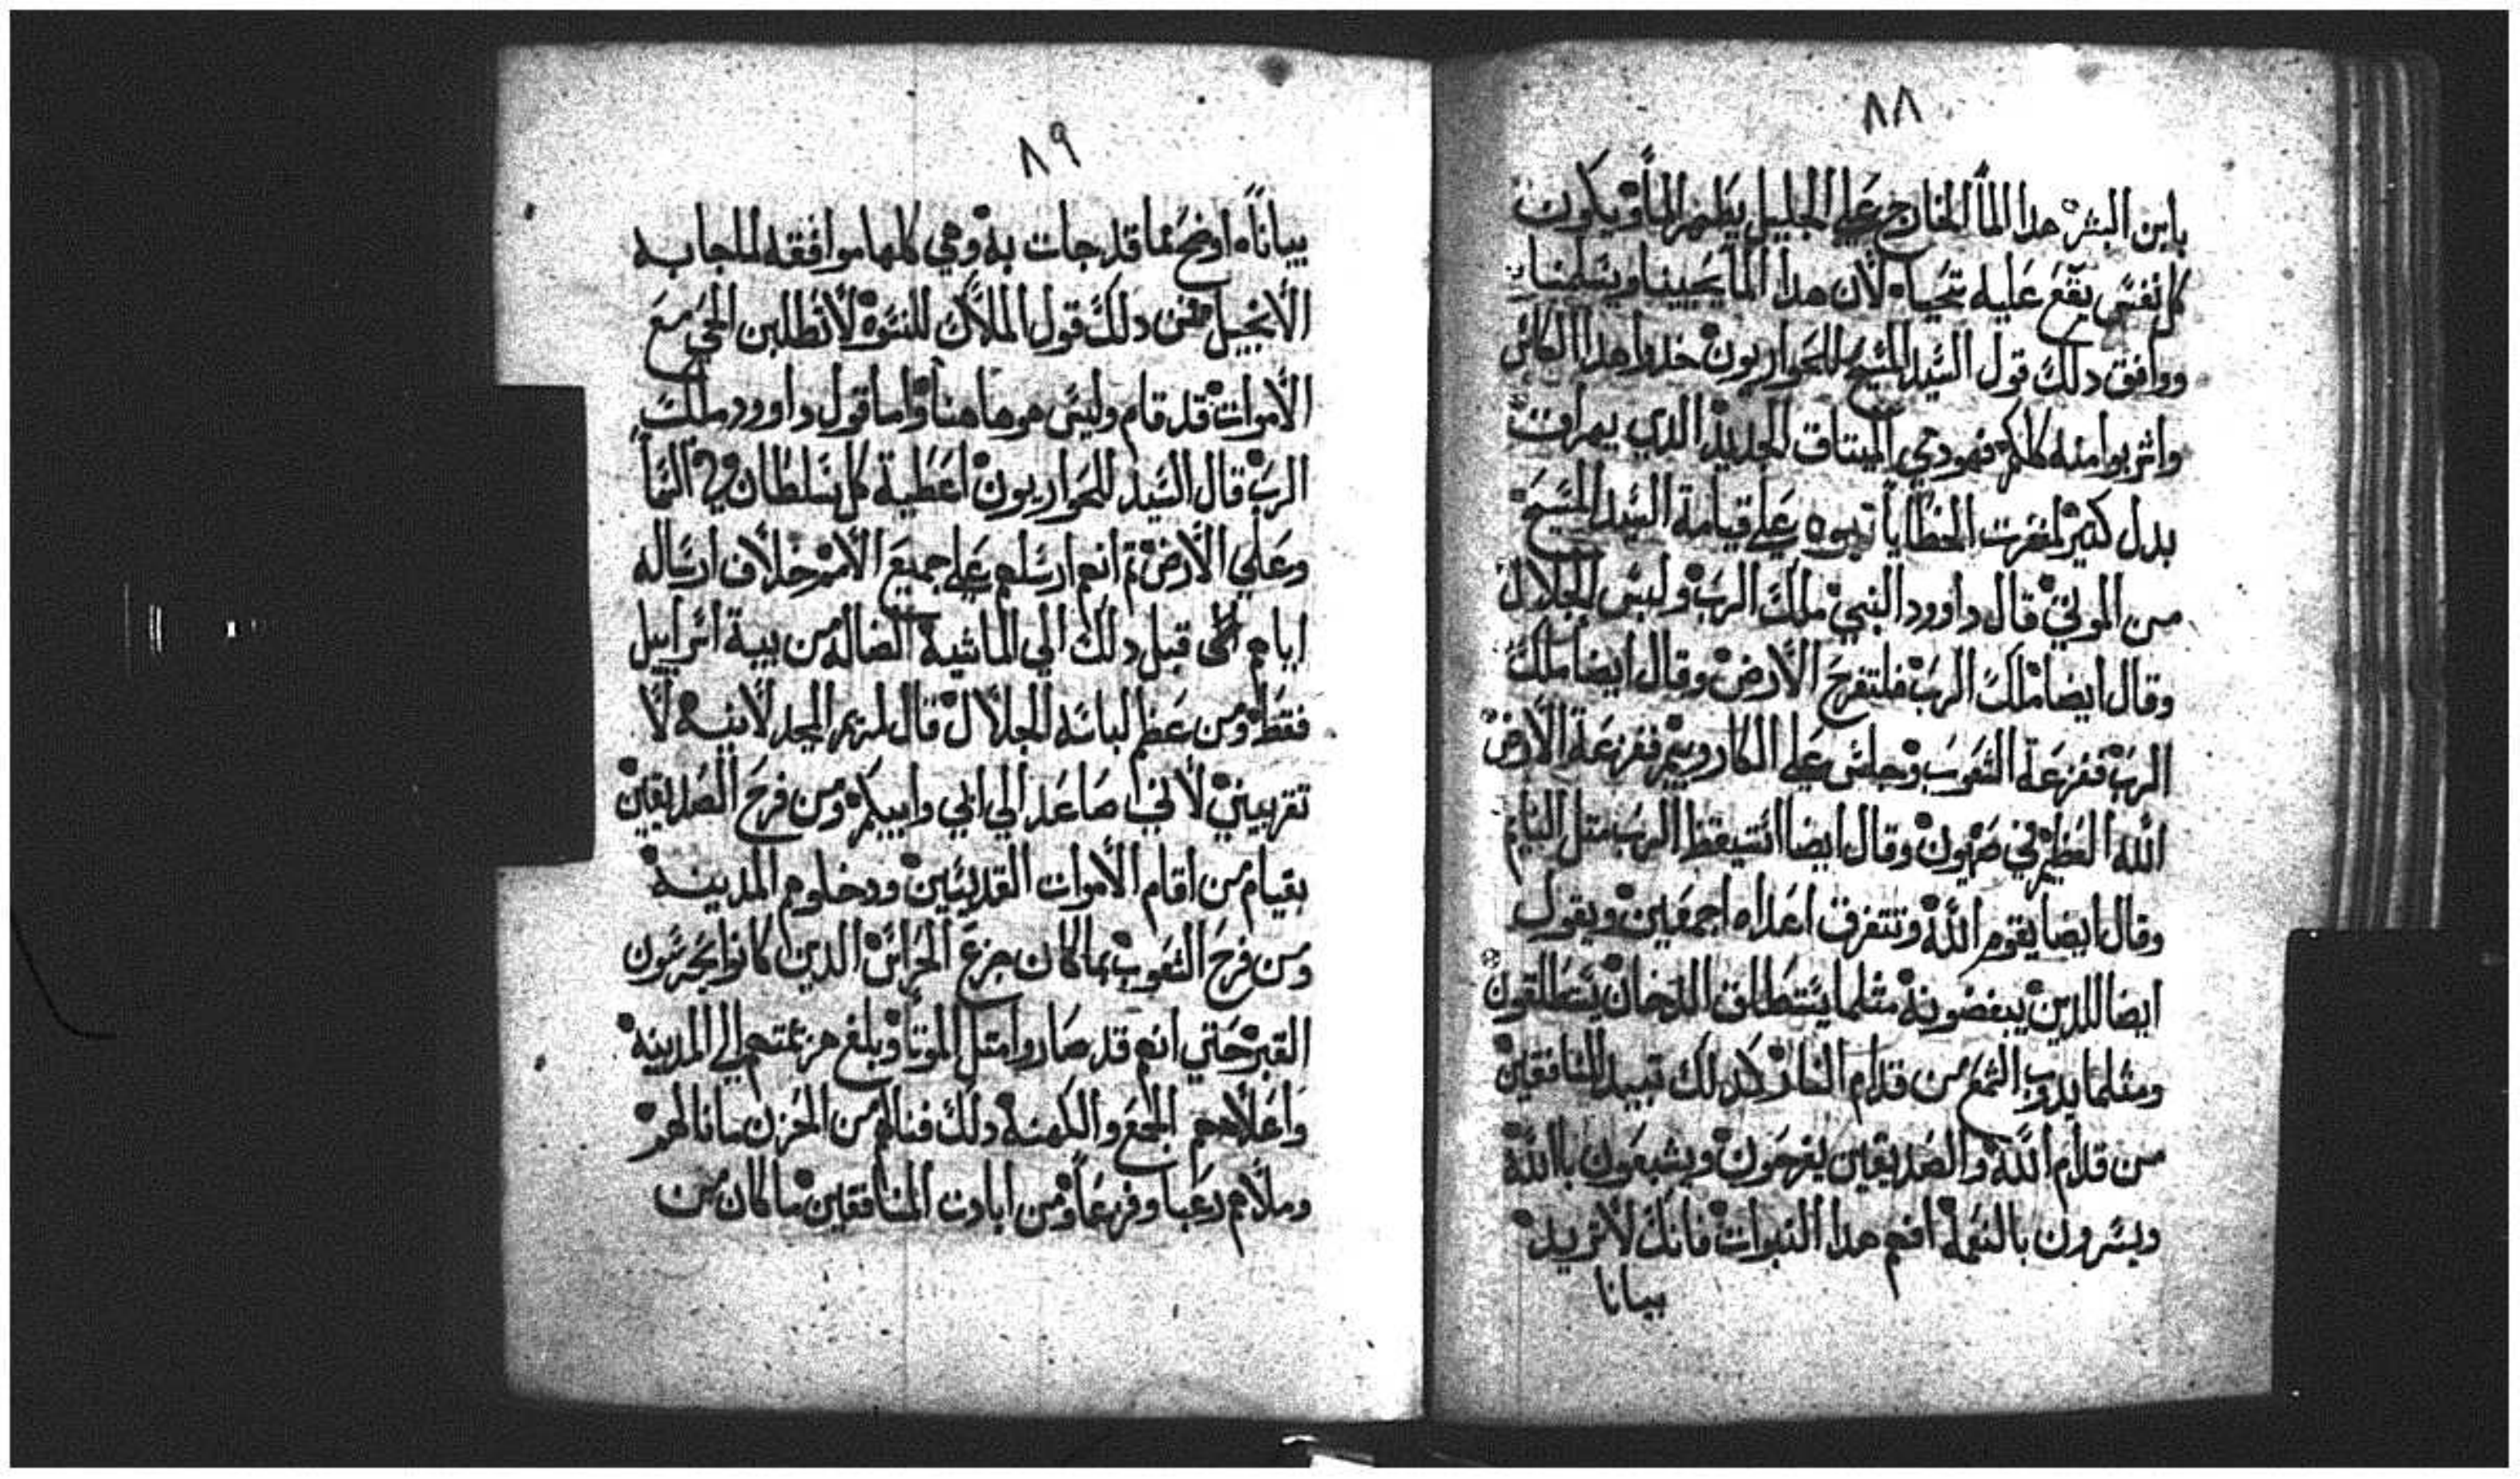 ٨٨
يابن البشر هدا الماء الخارج علي الجليل يطهر الماء ويكون
كل نفس يقع عليه تحياه لان هدا الما يحيينا ويسلمنا
ووافق دلك قول السيد المسيح للحواريون خدوا هدا الكاس
واشربوا منه كلكم فهو دمي الميتاق الجديد الدي يهراق
بدل كثير لمغفرت الخطايا نبوه علي قيامة السيد المسيح
من الموتي قال داوود النبي ملك الرب ولبس الجلال
وقال ايضا ملك الرب فلتفرح الارض وقال ايضا ملك
الرب ففزعة الشعوب وجلس علي الكاروبيم ففزعة الارض
الله العظيم في صهيون وقال ايضا استيقظ الرب متل النايم
وقال ايضا يقوم الله وتتفرق اعداه اجمعين ويقول
ايضا للدين يبغضونه مثلما يستطلق الدخان يستطلقون
ومثلما يدوب الشمع من قدام النار كدلك تبيد المنافقين
من قدام الله والصديقين يفرحون ويشبعون بالله
ويسرون بالنعمة افهم هدا النبوات فانك لا تريد
بيانا
٨٩
بيانا اوضح مما قد جات به وهي كلها موافقه لما جا به
الانجيل فمن دلك قول الملاك للنسوه لا تطلبن الحي مع
الاموات قد قام وليس هو هاهنا واما قول داوود ملك
الرب قال السيد للحواريون اعطية كل سلطان في السما
وعلي الارض تم انه ارسلهم علي جميع الامم خلاف ارساله
اياهم قبل دلك الي الماشية الضاله من بية اسراييل
فقط ومن عظم لباسه للجلال قال لمريم المجدلانيه لا
تقربيني لاني صاعد الي ابي وابيكم ومن فرح الصديقين
بقيام من اقام الاموات القديسين ودخلوهم المدينة
ومن فرح الشعوب ما كان جزع الحراس الدين كانوا يحرسون
القبر حتي انهم قد صاروا متل الموتا وبلغ هزيمتهم الي المدينه
واعلامهم الجمع والكهنة دلك فنالهم من الحزن ما نالهم
وملاهم رعبا وفزعا ومن ابادت المنافقين ما كان من